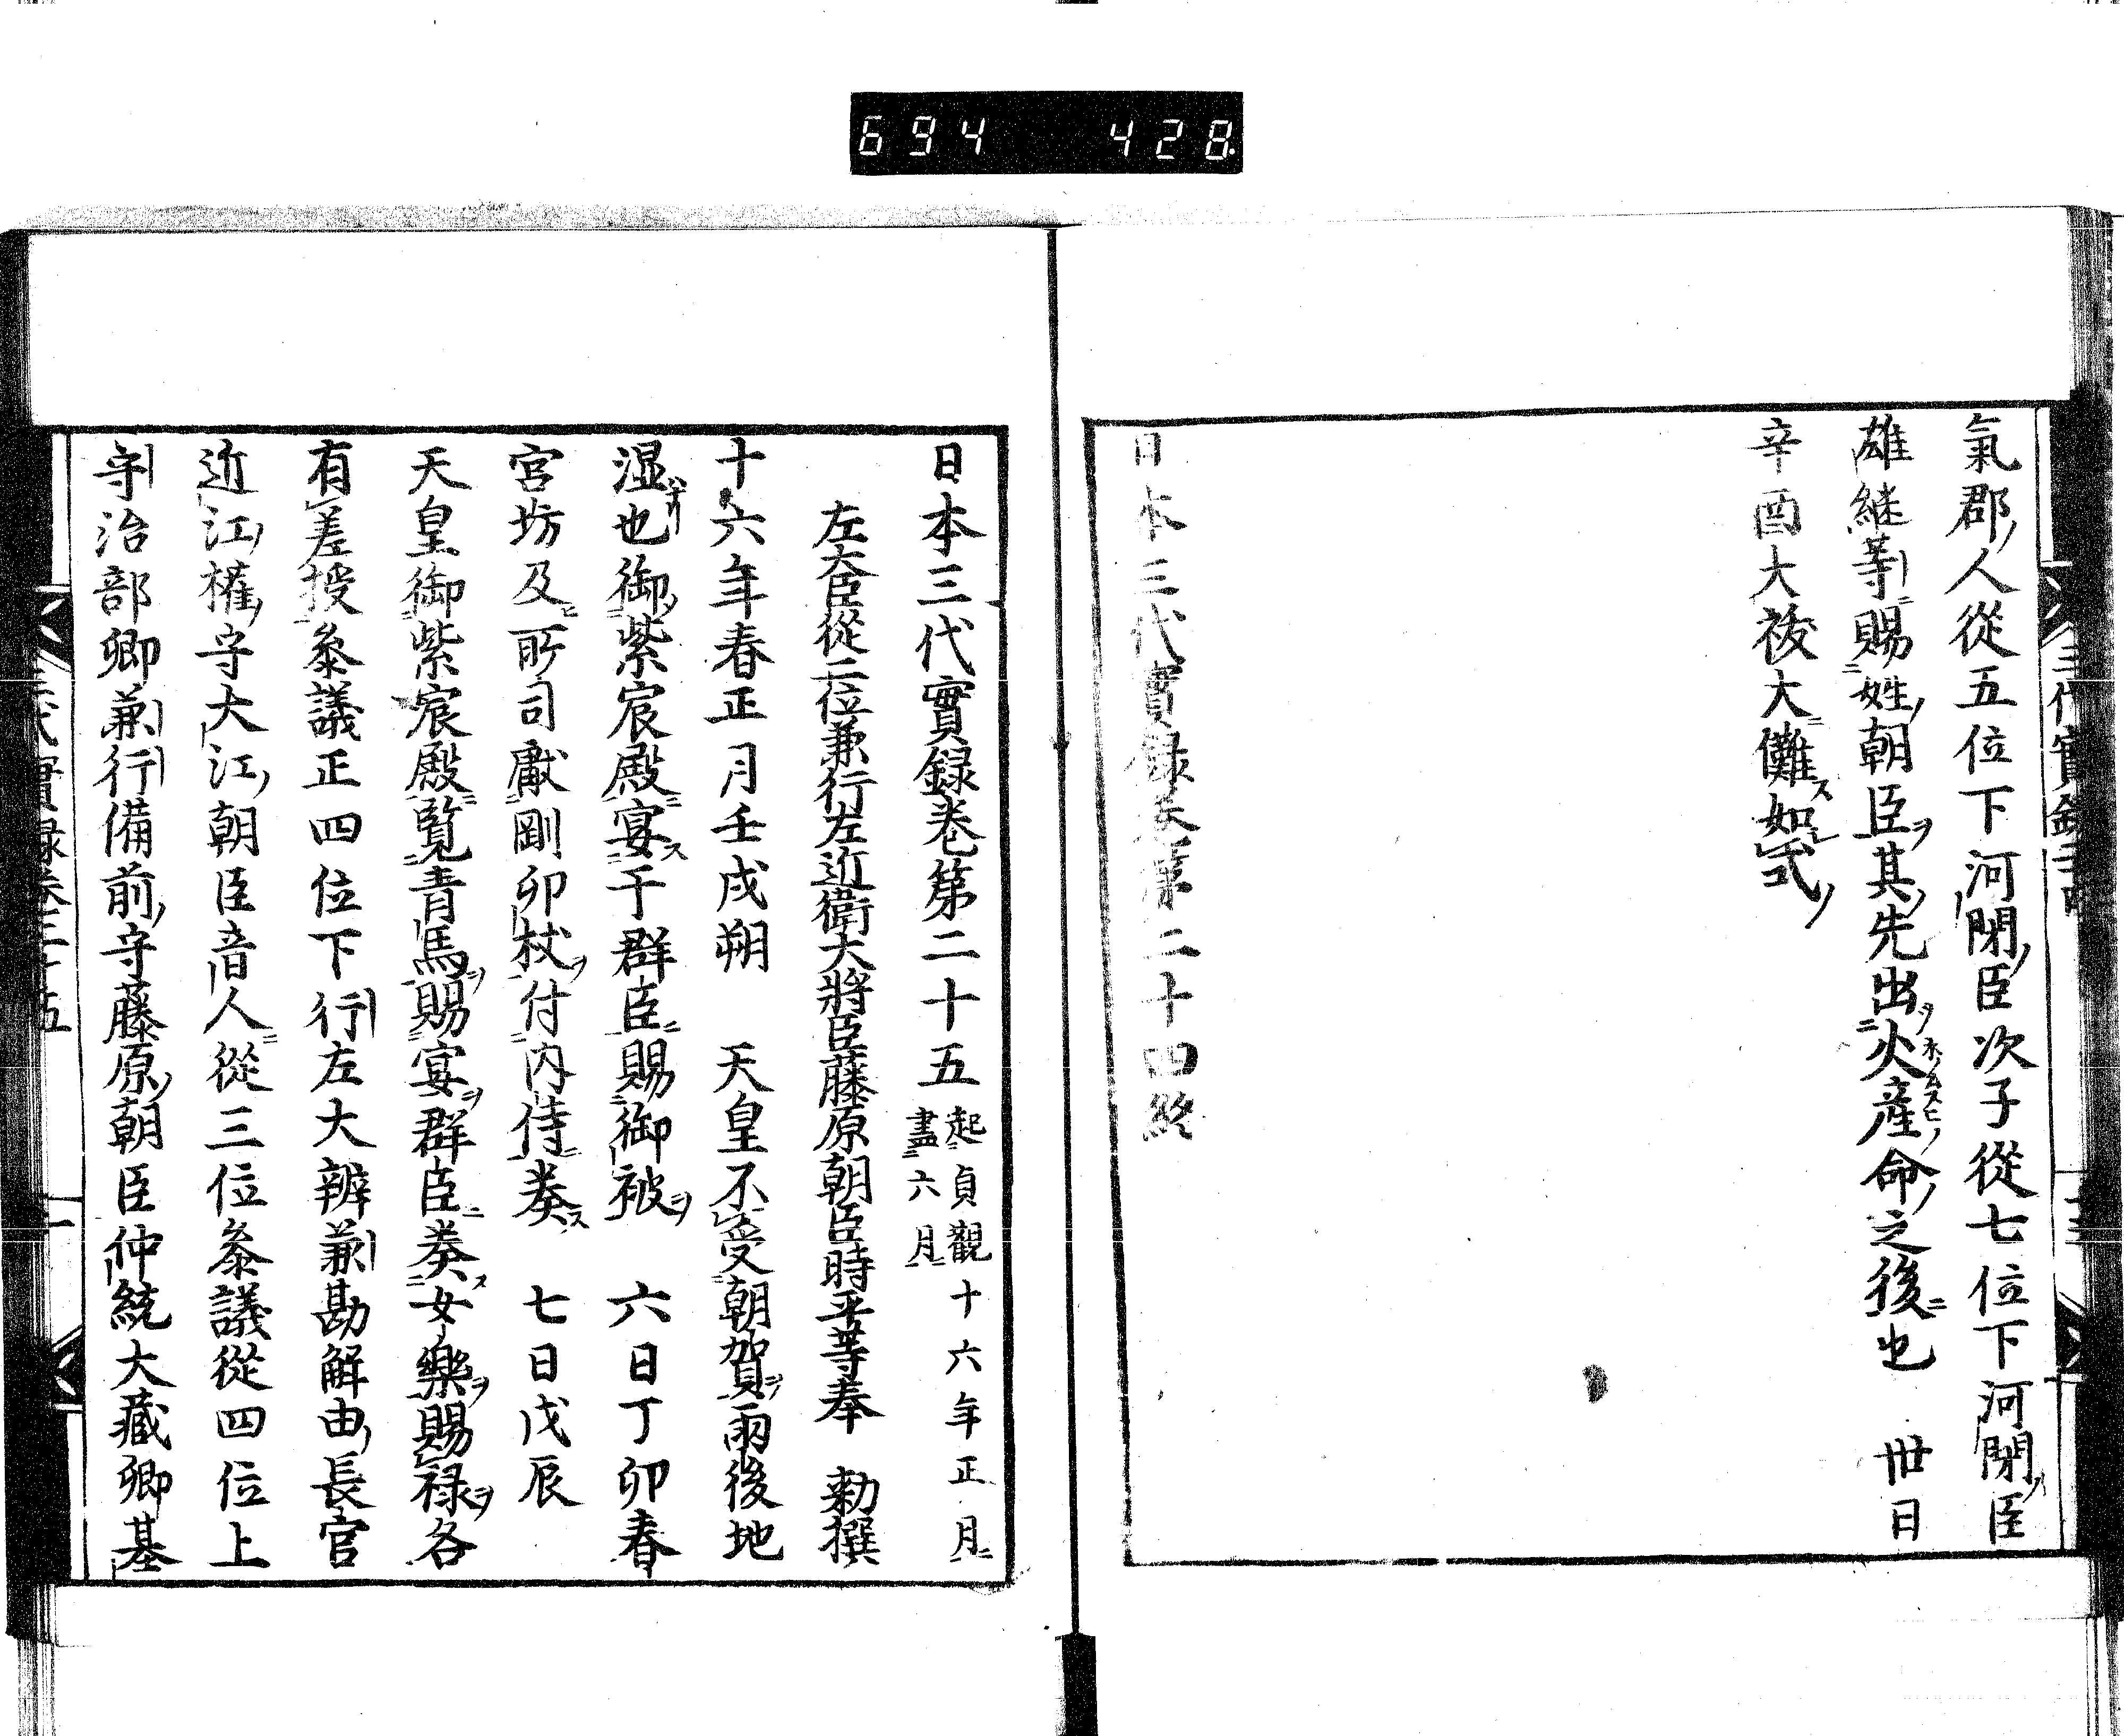 694 428
氣郡人從五位下河閒臣次子從七位下河閒臣
雄継等賜姓朝臣其先出火産命之後也 丗日
辛酉大祓大儺如式
日本三代實録卷第二十四終
日本三代實録卷第二十五 起貞觀十六年正月
盡六月
左大臣從二位兼行左近衛大將臣藤原朝臣時平等奉 勅撰
十六年春正月壬戌朔 天皇不受朝賀雨後地
湿也御紫宸殿宴于群臣賜御被 六日丁卯春
宮坊及所司獻剛卯杖付内侍奏 七日戊辰
天皇御紫宸殿覧青馬賜宴群臣奏女樂賜禄各
有差授叅議正四位下行左大辨兼勘解由長官
近江權守大江朝臣音人從三位叅議從四位上
守治部卿兼行備前守藤原朝臣仲統大藏卿基